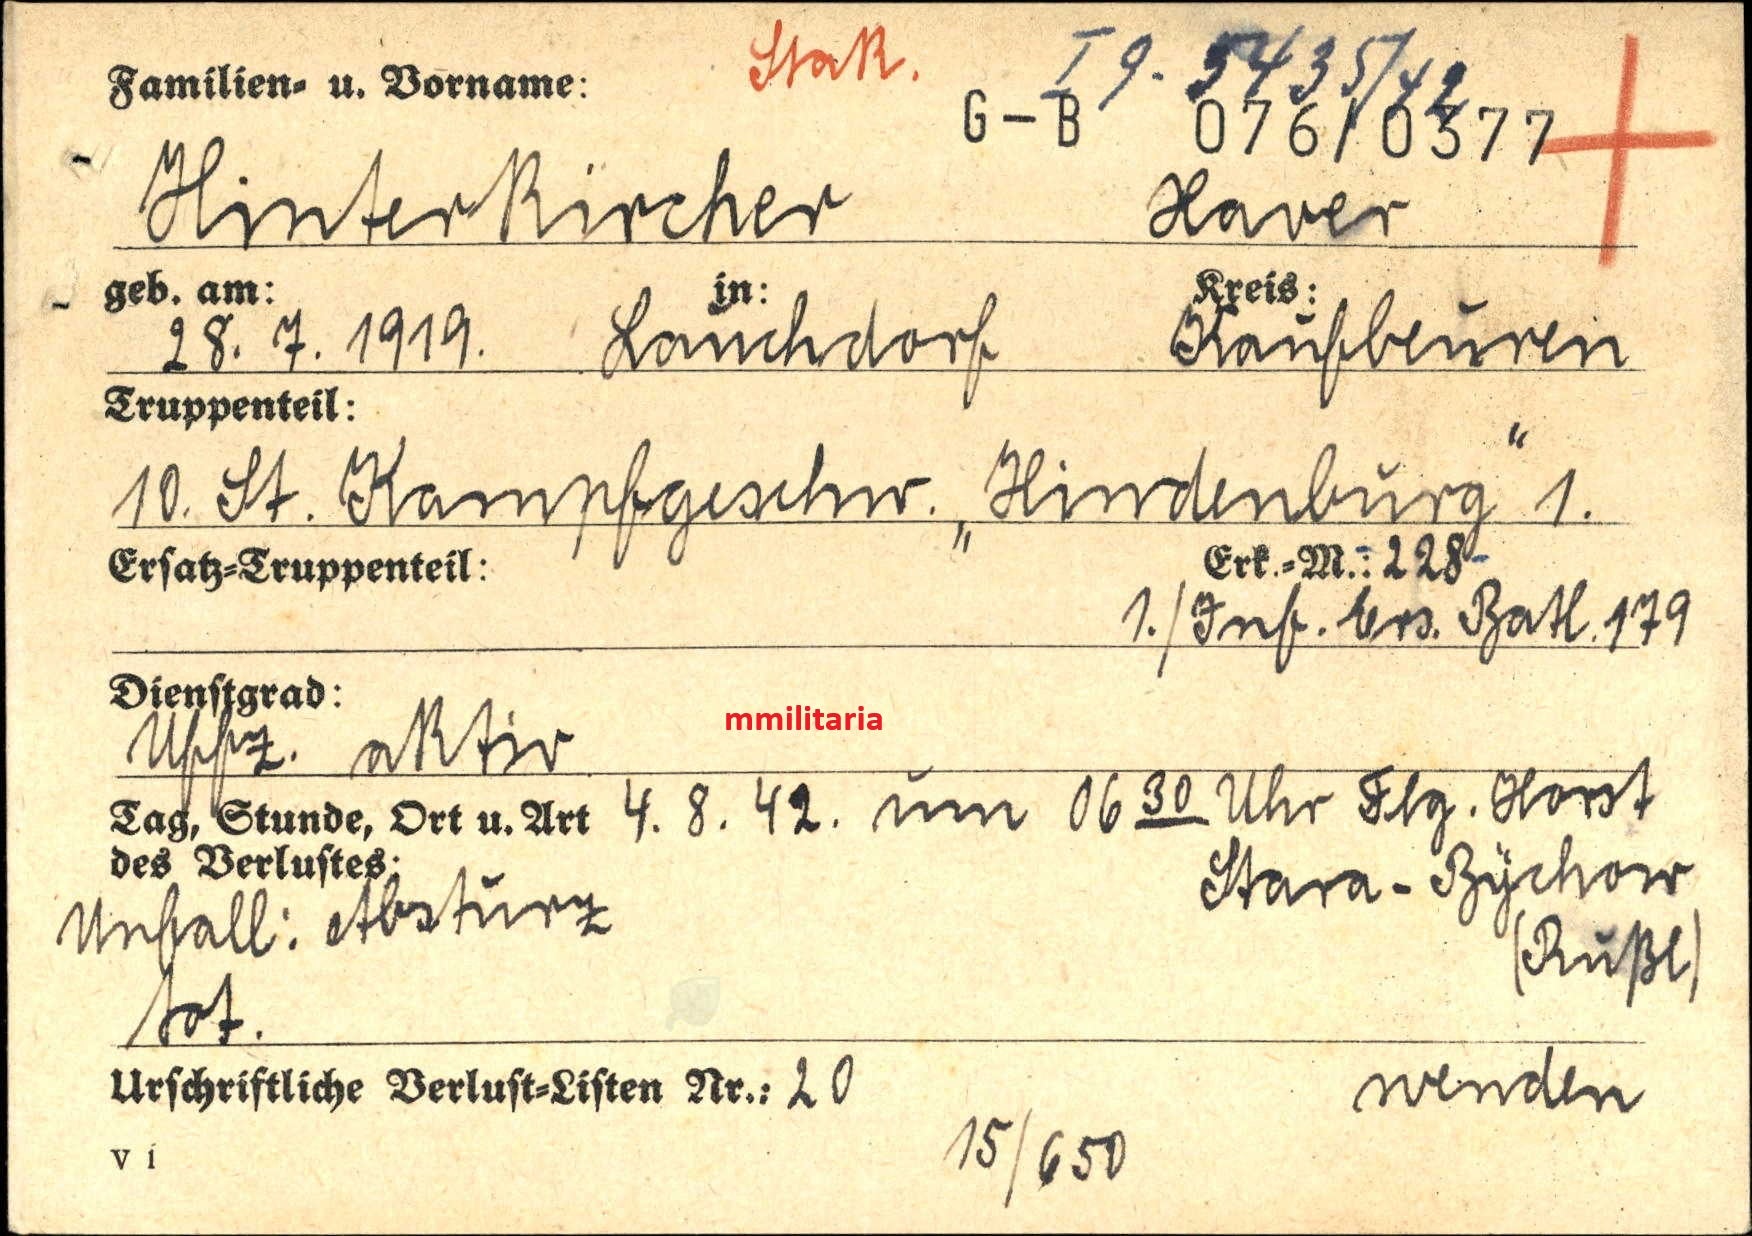 StaK. I 9. 5435/42
Familien- u. Vorname:
G-B 076/0377
Hinterkircher Xaver
geb. am: in: Kreis:
28. 7. 1919. Lauchdorf Kaufbeuren
Truppenteil:
10. St. Kampfgeschw. „Hindenburg“ 1.
Ersatz-Truppenteil: Erk.-M.: 228-
1./Inf. Ers. Batl. 179
Dienstgrad:
Uffz. aktiv
mmilitaria
Tag, Stunde, Ort u. Art 4. 8. 42. um 06 30 Uhr Flg. Horst
des Verlustes: Stara-Bychow
Unfall: Absturz
(Rußl)
tot.
Urschriftliche Verlust-Listen Nr.: 20 wenden
V i 15/650